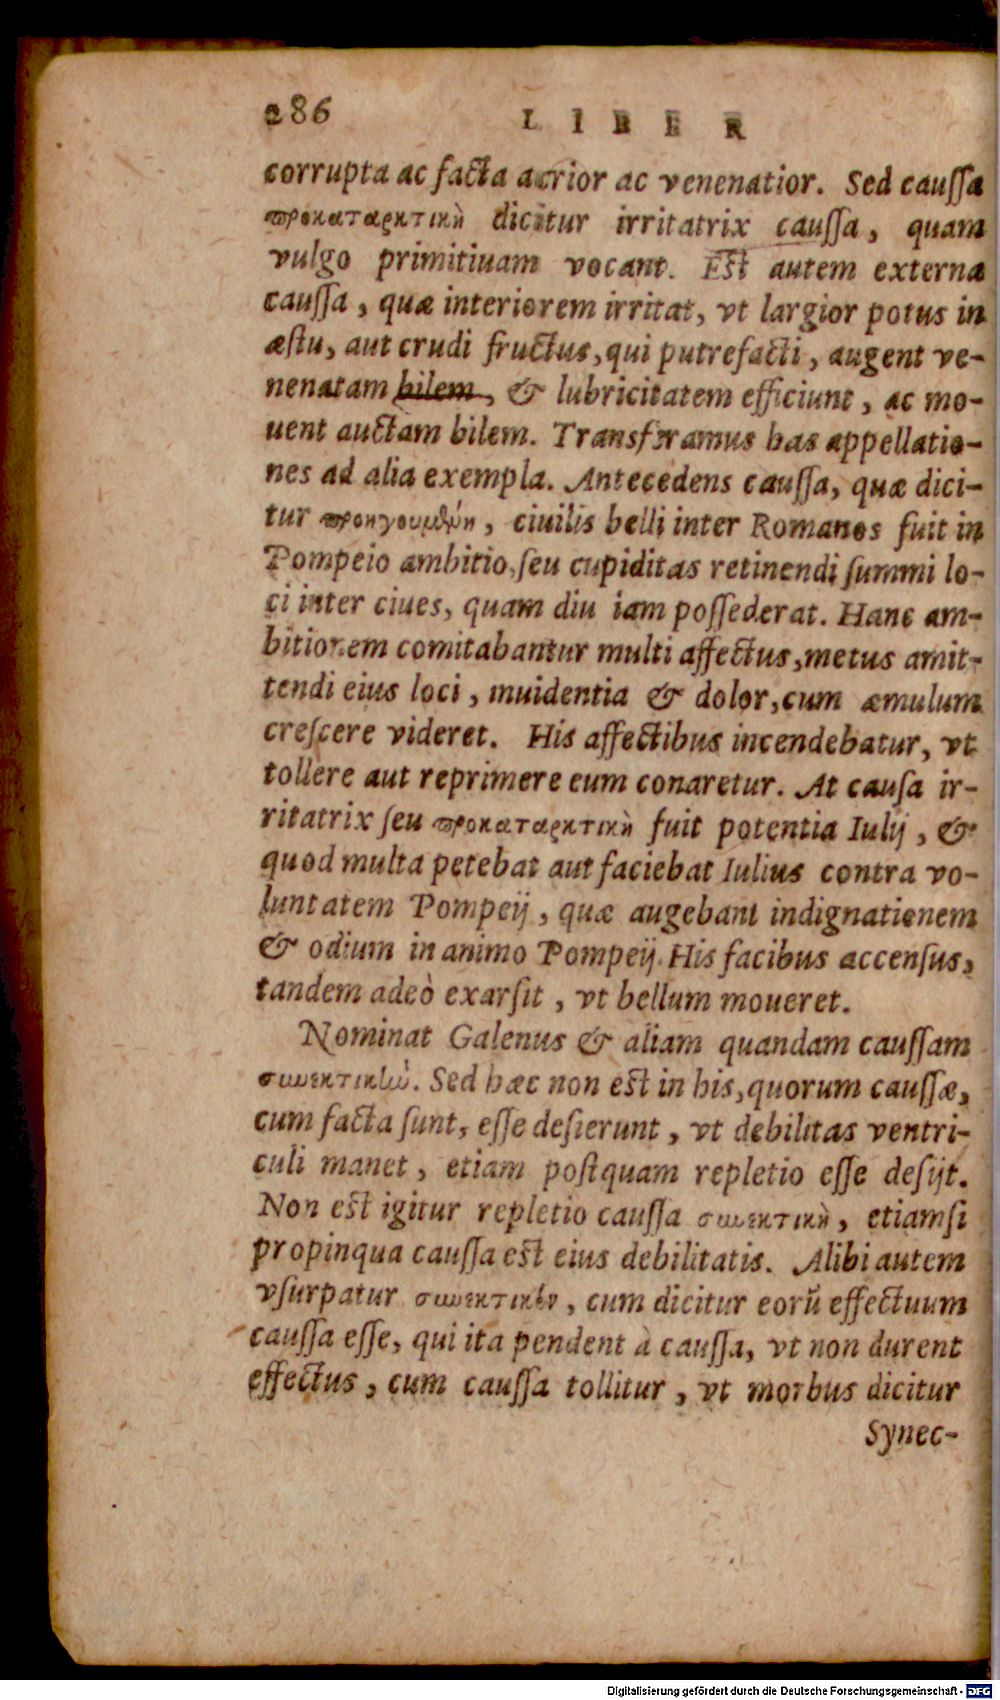 286 LIBER
corrupta ac facta acrior ac venenatior. Sed cauſſa
προκαταρκτικὴ dicitur irritatrix cauſſa, quam
vulgo primitiuam vocant. Eſt autem externa
cauſſa, quæ interiorem irritat, vt largior potus in
æſtu, aut crudi fructus, qui putrefacti, augent ve-
nenatam bilem, & lubricitatem efficiunt, ac mo-
uent auctam bilem. Transferamus has appellatio-
nes ad alia exempla. Antecedens cauſſa, quæ dici-
tur προηγουμένη, ciuilis belli inter Romanos fuit in
Pompeio ambitio, ſeu cupiditas retinendi ſummi lo-
ci inter ciues, quam diu iam poſſederat. Hanc am-
bitionem comitabantur multi affectus, metus amit-
tendi eius loci, inuidentia & dolor, cum æmulum
creſcere videret. His affectibus incendebatur, vt
tollere aut reprimere eum conaretur. At cauſa ir-
ritatrix ſeu προκαταρκτικὴ fuit potentia Iulij, &
quod multa petebat aut faciebat Iulius contra vo-
luntatem Pompeij, quæ augebant indignationem
& odium in animo Pompeij. His facibus accenſus,
tandem adeò exarſit, vt bellum moueret.
Nominat Galenus & aliam quandam cauſſam
συνεκτικὼ. Sed hæc non eſt in his, quorum cauſſæ,
cum facta ſunt, eſſe deſierunt, vt debilitas ventri-
culi manet, etiam poſtquam repletio eſſe deſijt.
Non eſt igitur repletio cauſſa συνεκτικὴ, etiamſi
propinqua cauſſa eſt eius debilitatis. Alibi autem
vſurpatur συνεκτικὸν, cum dicitur eorũ effectuum
cauſſa eſſe, qui ita pendent à cauſſa, vt non durent
effectus, cum cauſſa tollitur, vt morbus dicitur
Synec-
Digitalisierung gefördert durch die Deutsche Forschungsgemeinschaft - DFG